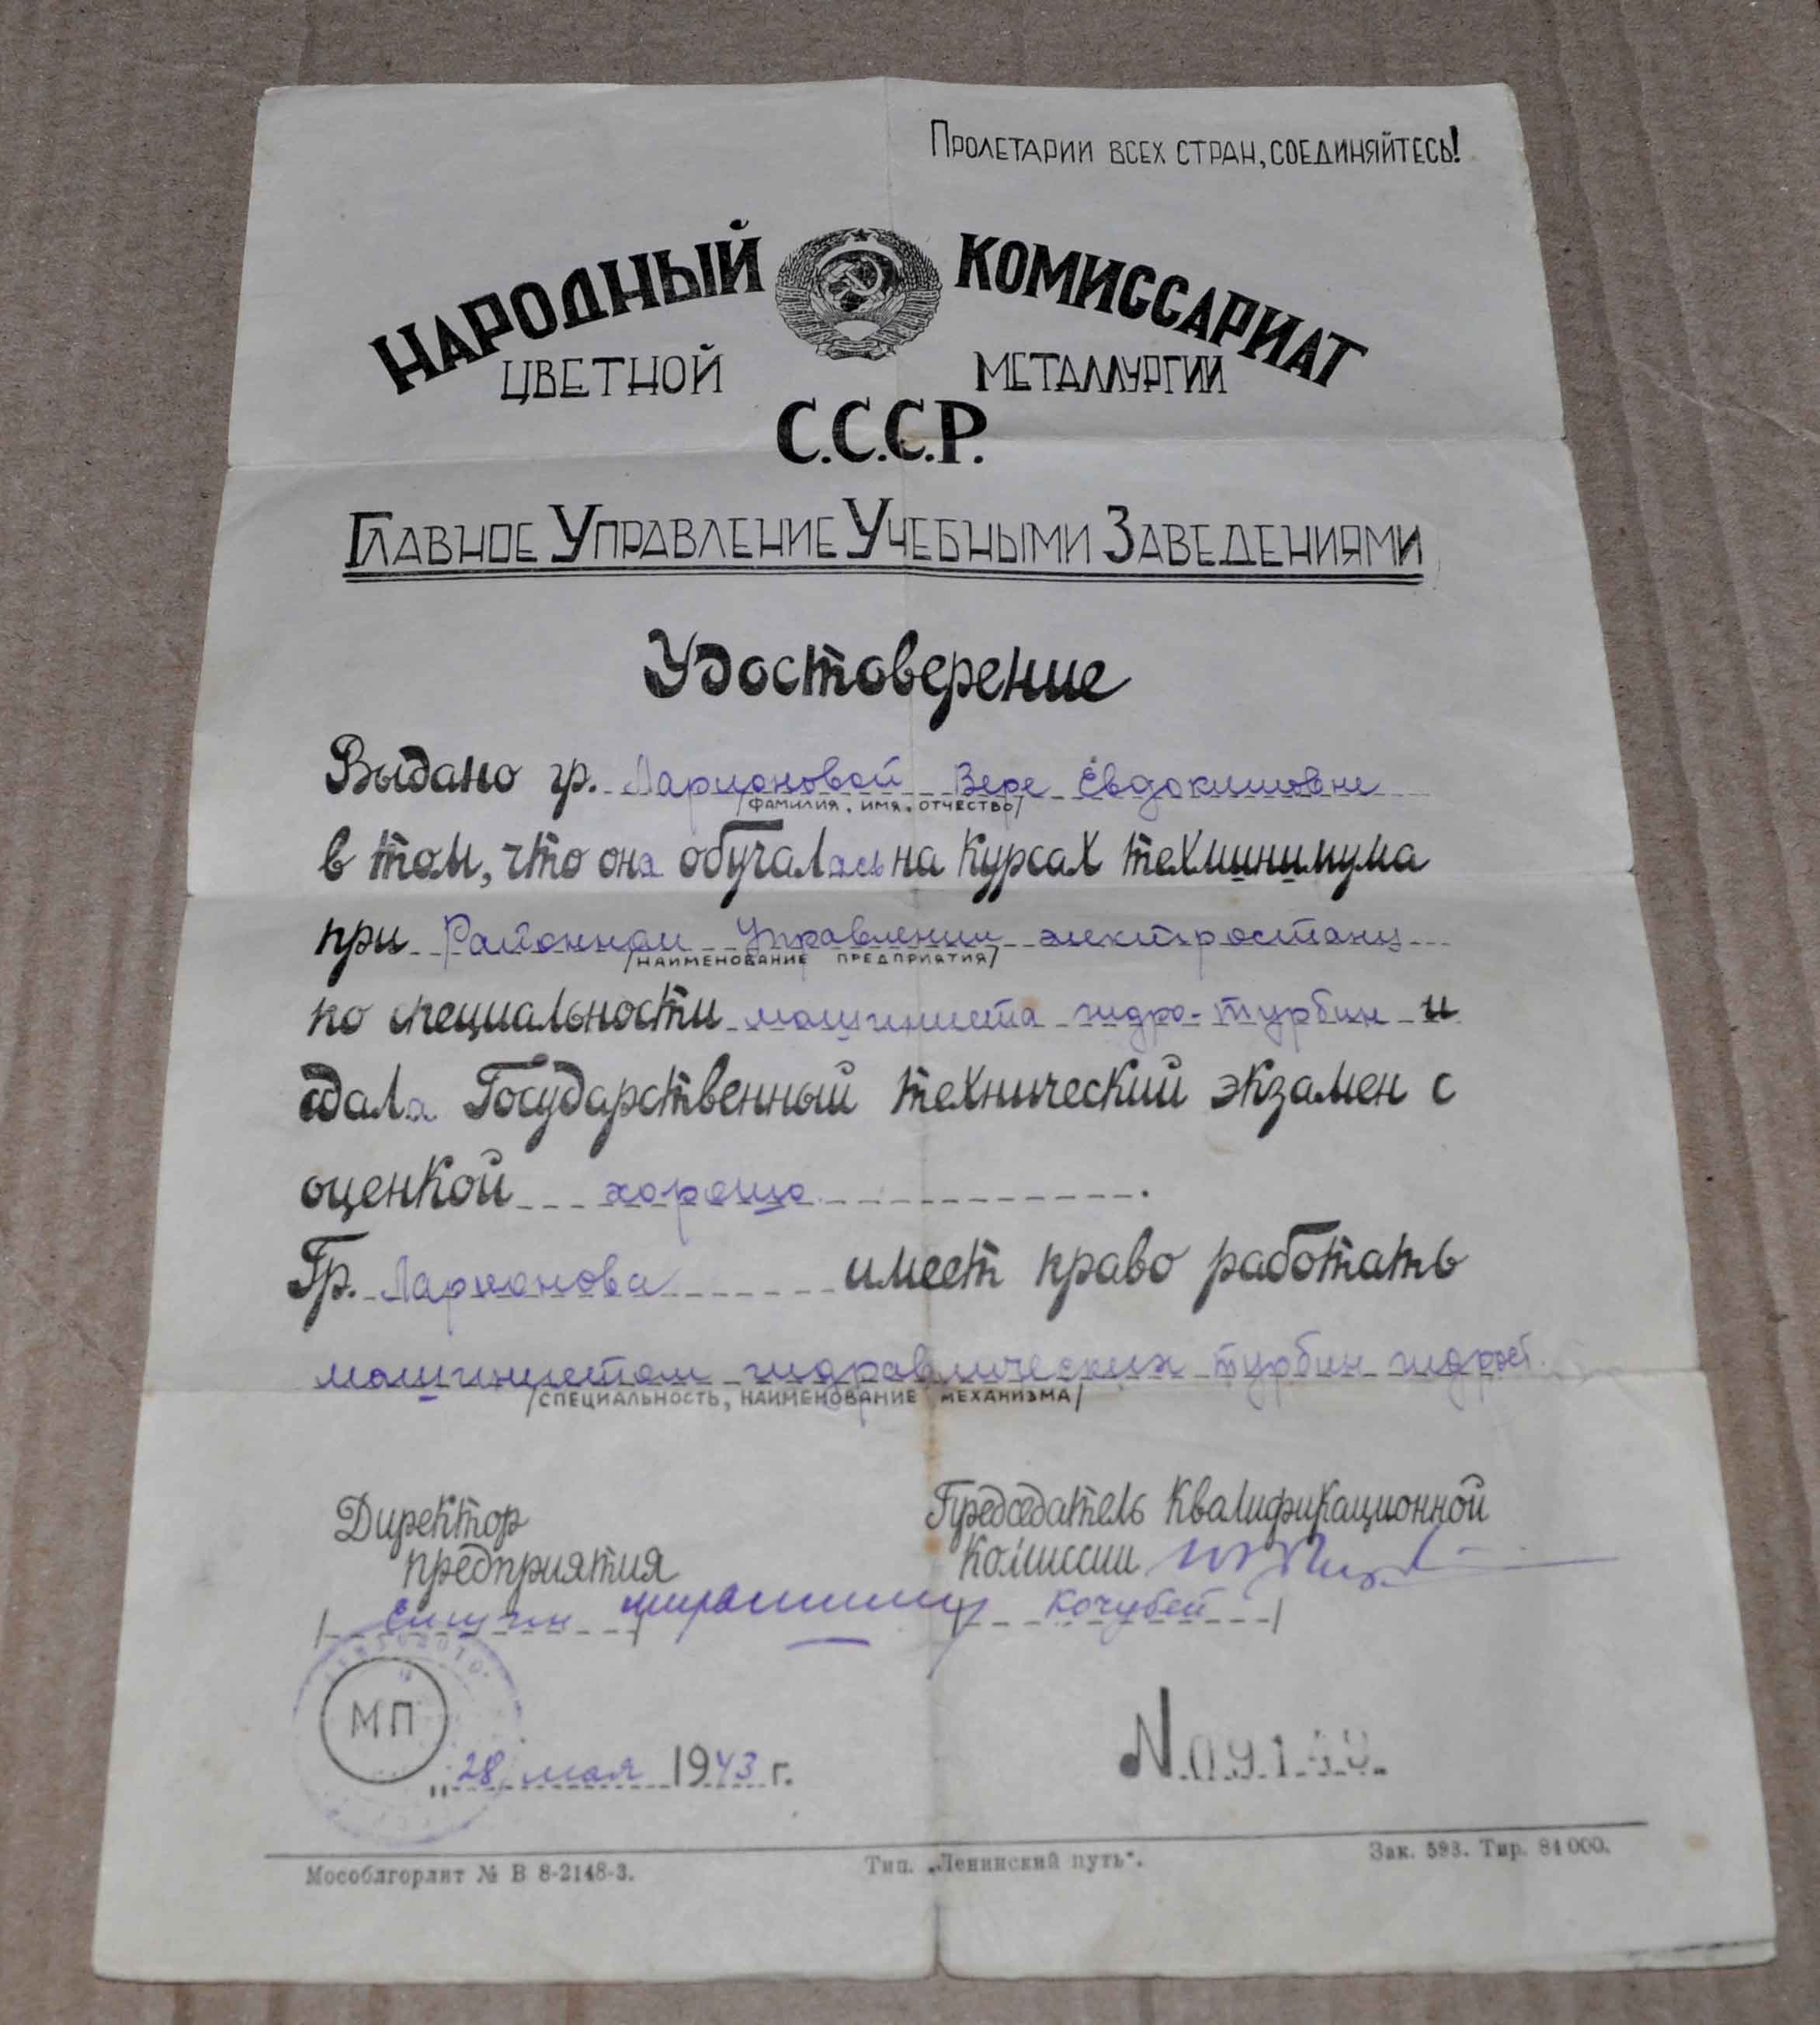 Пролетарии всех стран, соединяйтесь!
НАРОДНЫЙ КОМИССАРИАТ
ЦВЕТНОЙ МЕТАЛЛУРГИИ
С.С.С.Р.
Главное Управление Учебными Заведениями
Удостоверение
Выдано гр. Ларионовой Вере Евдокимовне
/ФАМИЛИЯ, ИМЯ, ОТЧЕСТВО/
в том, что она обучалась на курсах техминимума
при Районном Управлении электростанц
/НАИМЕНОВАНИЕ ПРЕДПРИЯТИЯ/
по специальности машиниста гидро-турбин и
сдала Государственный технический экзамен с
оценкой хорошо.
Гр. Ларионова имеет право работать
машинистом гидравлических турбин гидрост.
/СПЕЦИАЛЬНОСТЬ, НАИМЕНОВАНИЕ МЕХАНИЗМА/
Директор предприятия
Председатель Квалификационной Комиссии
/Кочубей/
МП
„28 мая 1943 г.
N
Мособлгорлит № В 8-2148-3. Тип. „Ленинский путь“. Зак. 593. Тир. 84 000.